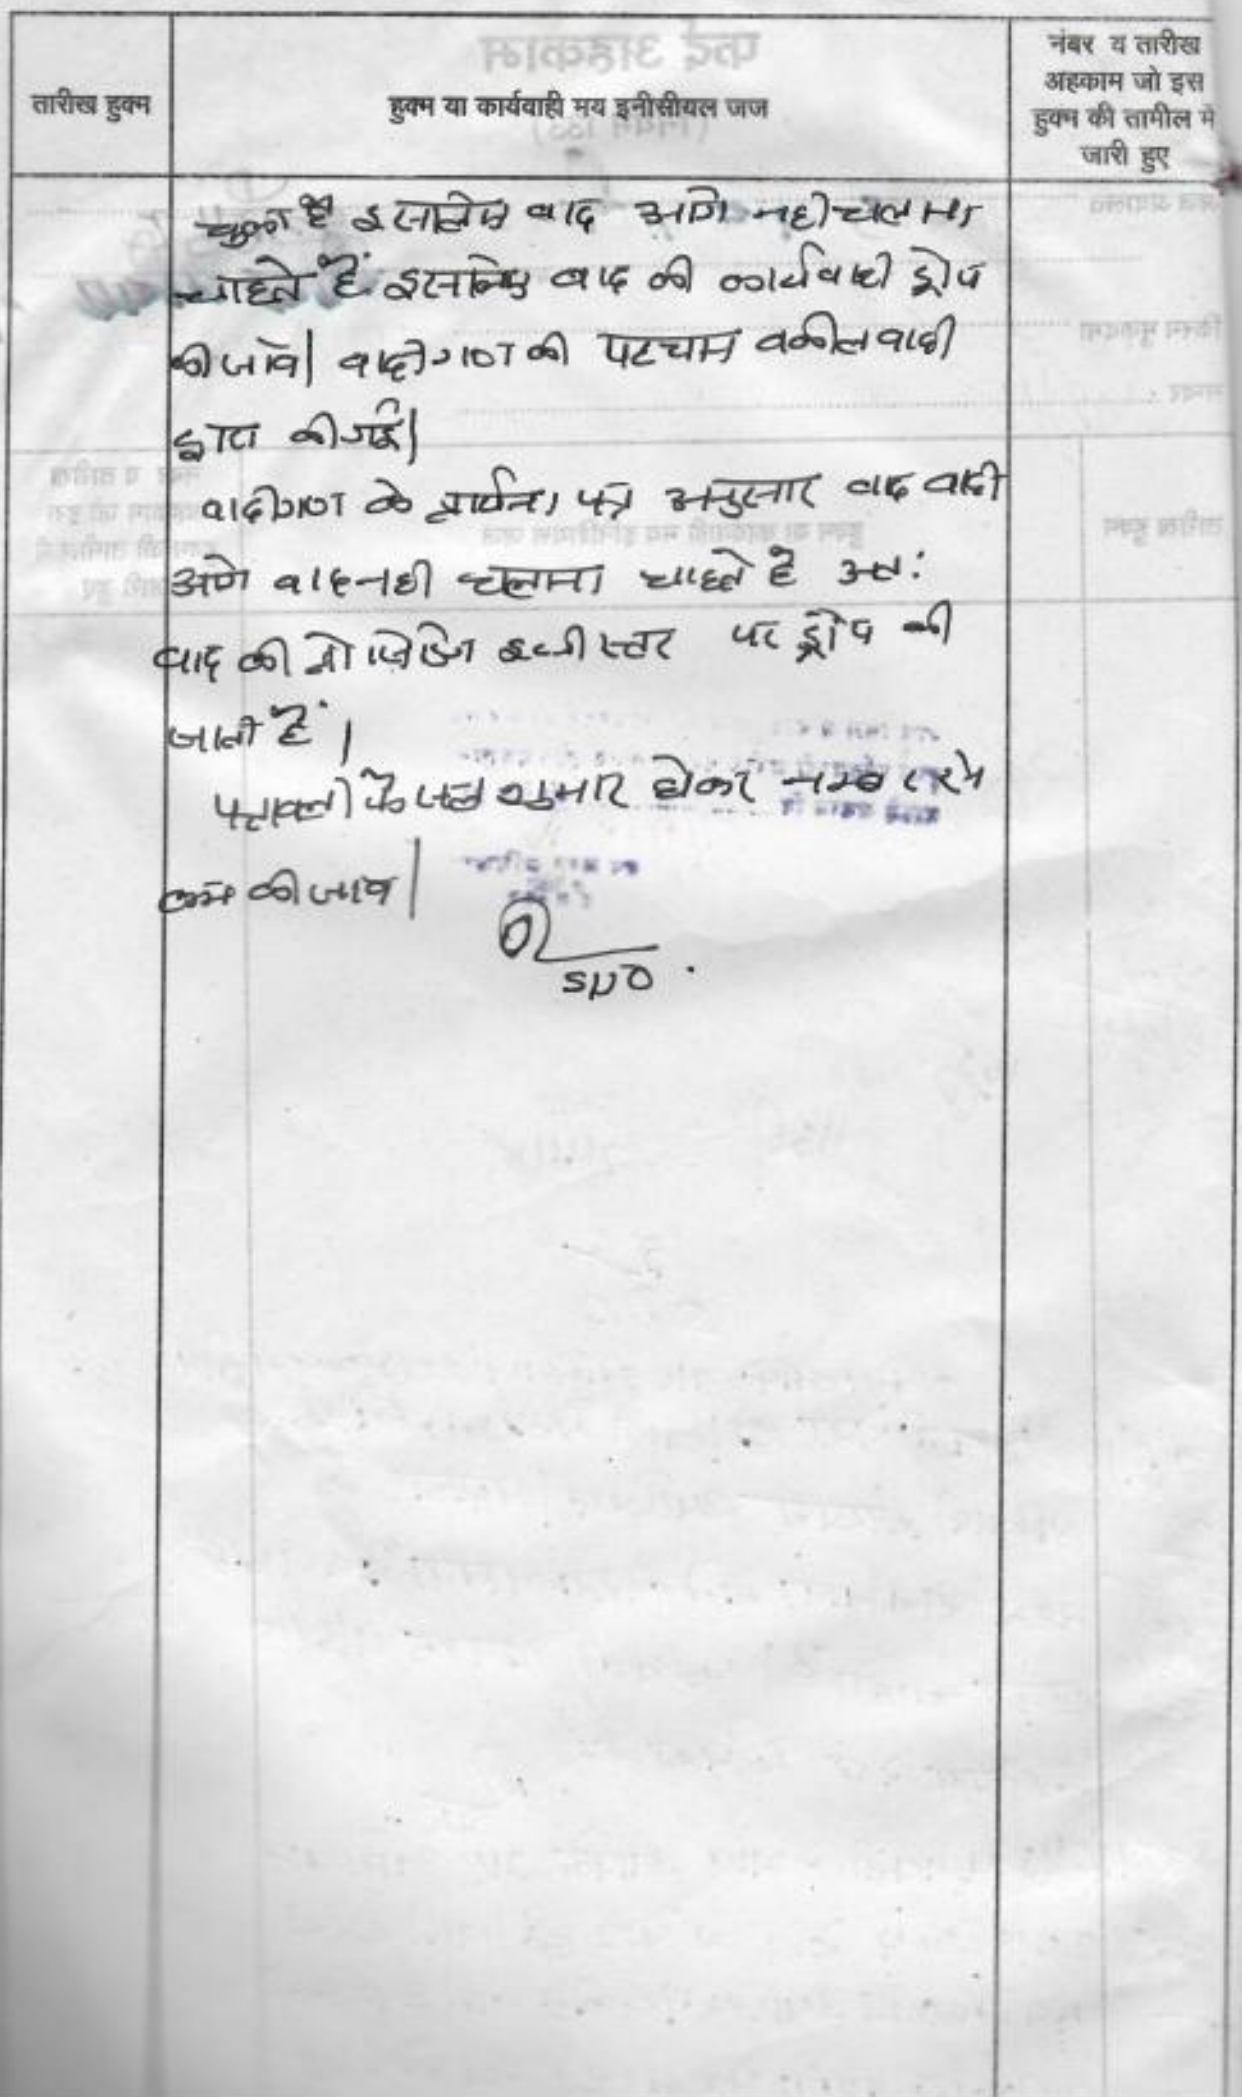 तारीख हुक्म
हुक्म या कार्यवाही मय इनीसीयल जज
नंबर य तारीख
अहकाम जो इस
हुक्म की तामील में
जारी हुए
चुका है इसलिए वाद आगे नही चलाना
चाहते हैं इसलिए वाद की कार्यवाही ड्रोप
की जावे। वादीगण की पहचान वकील वादी
द्वारा की गई।
वादीगण के प्रार्थना पत्र अनुसार वाद वादी
आगे वाद नही चलाना चाहते है अतः
वाद की इसी स्तर पर ड्रोप की
जाती है।
पत्रावली फैसल शुमार होकर नम्बर से
कम की जावे।
SDO.